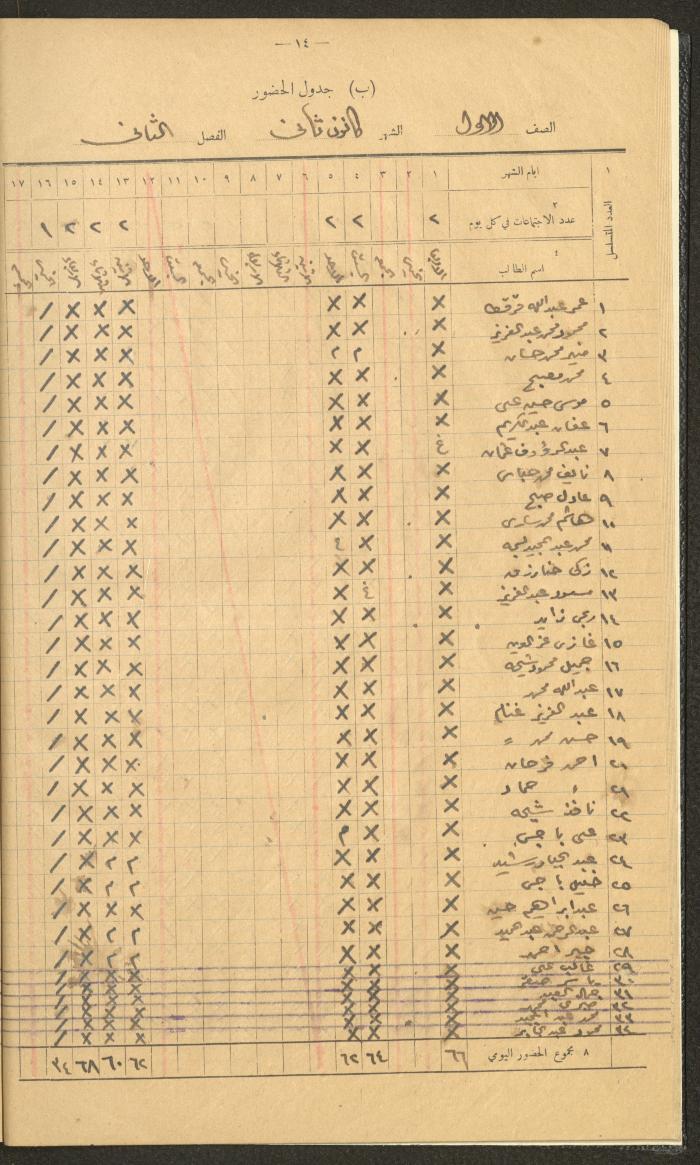 — ١٤ —
(ب) جدول الحضور
الصف الاول الشهر كانون ثاني الفصل الثاني
١ ايام الشهر ١ ٢ ٣ ٤ ٥ ٦ ٧ ٨ ٩ ١٠ ١١ ١٢ ١٣ ١٤ ١٥ ١٦ ١٧
العدد المتسلسل
٢ عدد الاجتماعات في كل يوم ٢ ٢ ٢ ٢ ٢ ٢ ١
٤ اسم الطالب الجمعة السبت الاحد الاثنين الثلاثاء الاربعاء الخميس الجمعة السبت الاحد الاثنين الثلاثاء الاربعاء الخميس الجمعة
١ عمر عبدالله X X X X X X /
٢ محمود محمد عبد العزيز X X X X X X /
٣ منير محمد حسان X ٢ ٢ X X X /
٤ محمد مصبح X X X X X X /
٥ موسى حسين علي X X X X X X /
٦ عفان عبد الكريم X X X X X X /
٧ عبد الرؤوف عثمان غ X X X X X /
٨ نايف محمد عباس X X X X X X /
٩ عادل صبح X X X X X X /
١٠ هاشم محمد X X X X X X /
١١ محمد عبد المجيد X X X X X /
١٢ زكي حنا رزق X X X X X X /
١٣ مسعود عبد العزيز X غ X X X X /
١٤ زايد X X X X X X /
١٥ غازي عز الدين X X X X X X /
١٦ جميل محمود شيحه X X X X X X /
١٧ عبدالله محمد X X X X X X /
١٨ عبد العزيز غنام X X X X X X /
١٩ حسن محمد = X X X X X X /
٢٠ احمد فرحان X X X X X X /
٢١ حماد X X X X X X /
٢٢ نافذ شيحه X X X X X X /
٢٣ علي X X م X X X /
٢٤ عبد الجبار رشيد X X X ٢ ٢ X /
٢٥ خليل X X X ٢ ٢ X /
٢٦ عبد ابراهيم حسين X X X X X X /
٢٧ عبد الرحمن عبد حميد X X X ٢ ٢ X /
٢٨ احمد X X X ٢ ٢ X /
٢٩ غالب علي X X X X X X /
٣٠ X X X X X X /
٣١ X X X X X X /
٣٢ X X X X X X /
٣٣ محمد عبد المجيد X X X X X X /
٣٤ محمود عبد الجابر X X X X X X /
٨ مجموع الحضور اليومي ٦٦ ٦٤ ٦٢ ٦٢ ٦٠ ٦٨ ٣٤